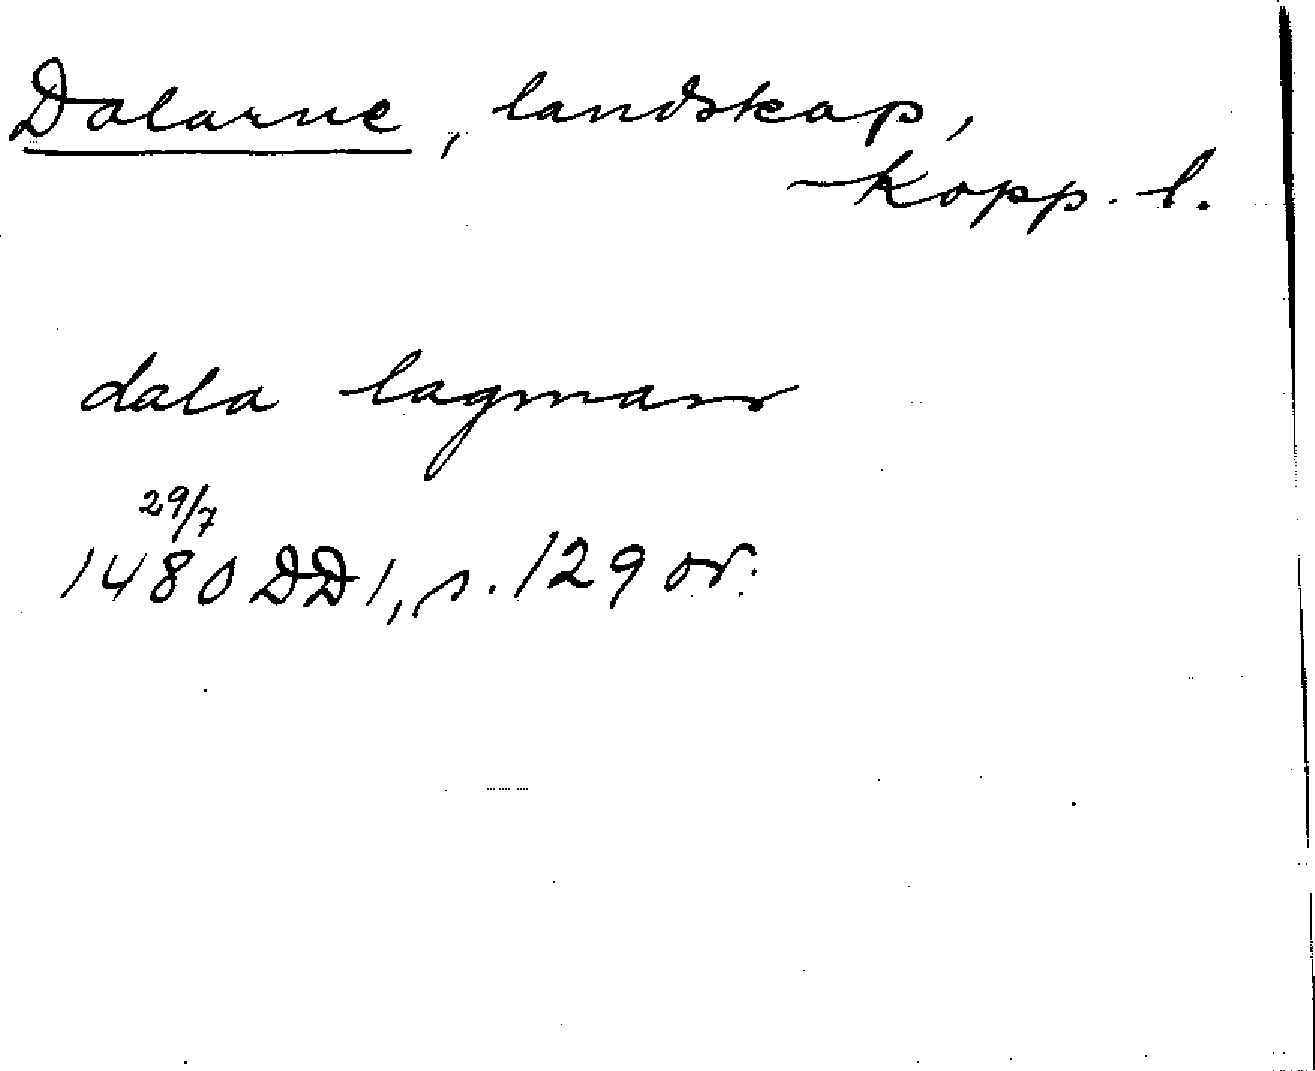 Dalarne, landskap,
Kopp. l.
dala lagman
29/7
1480 DD 1, s. 129 or.